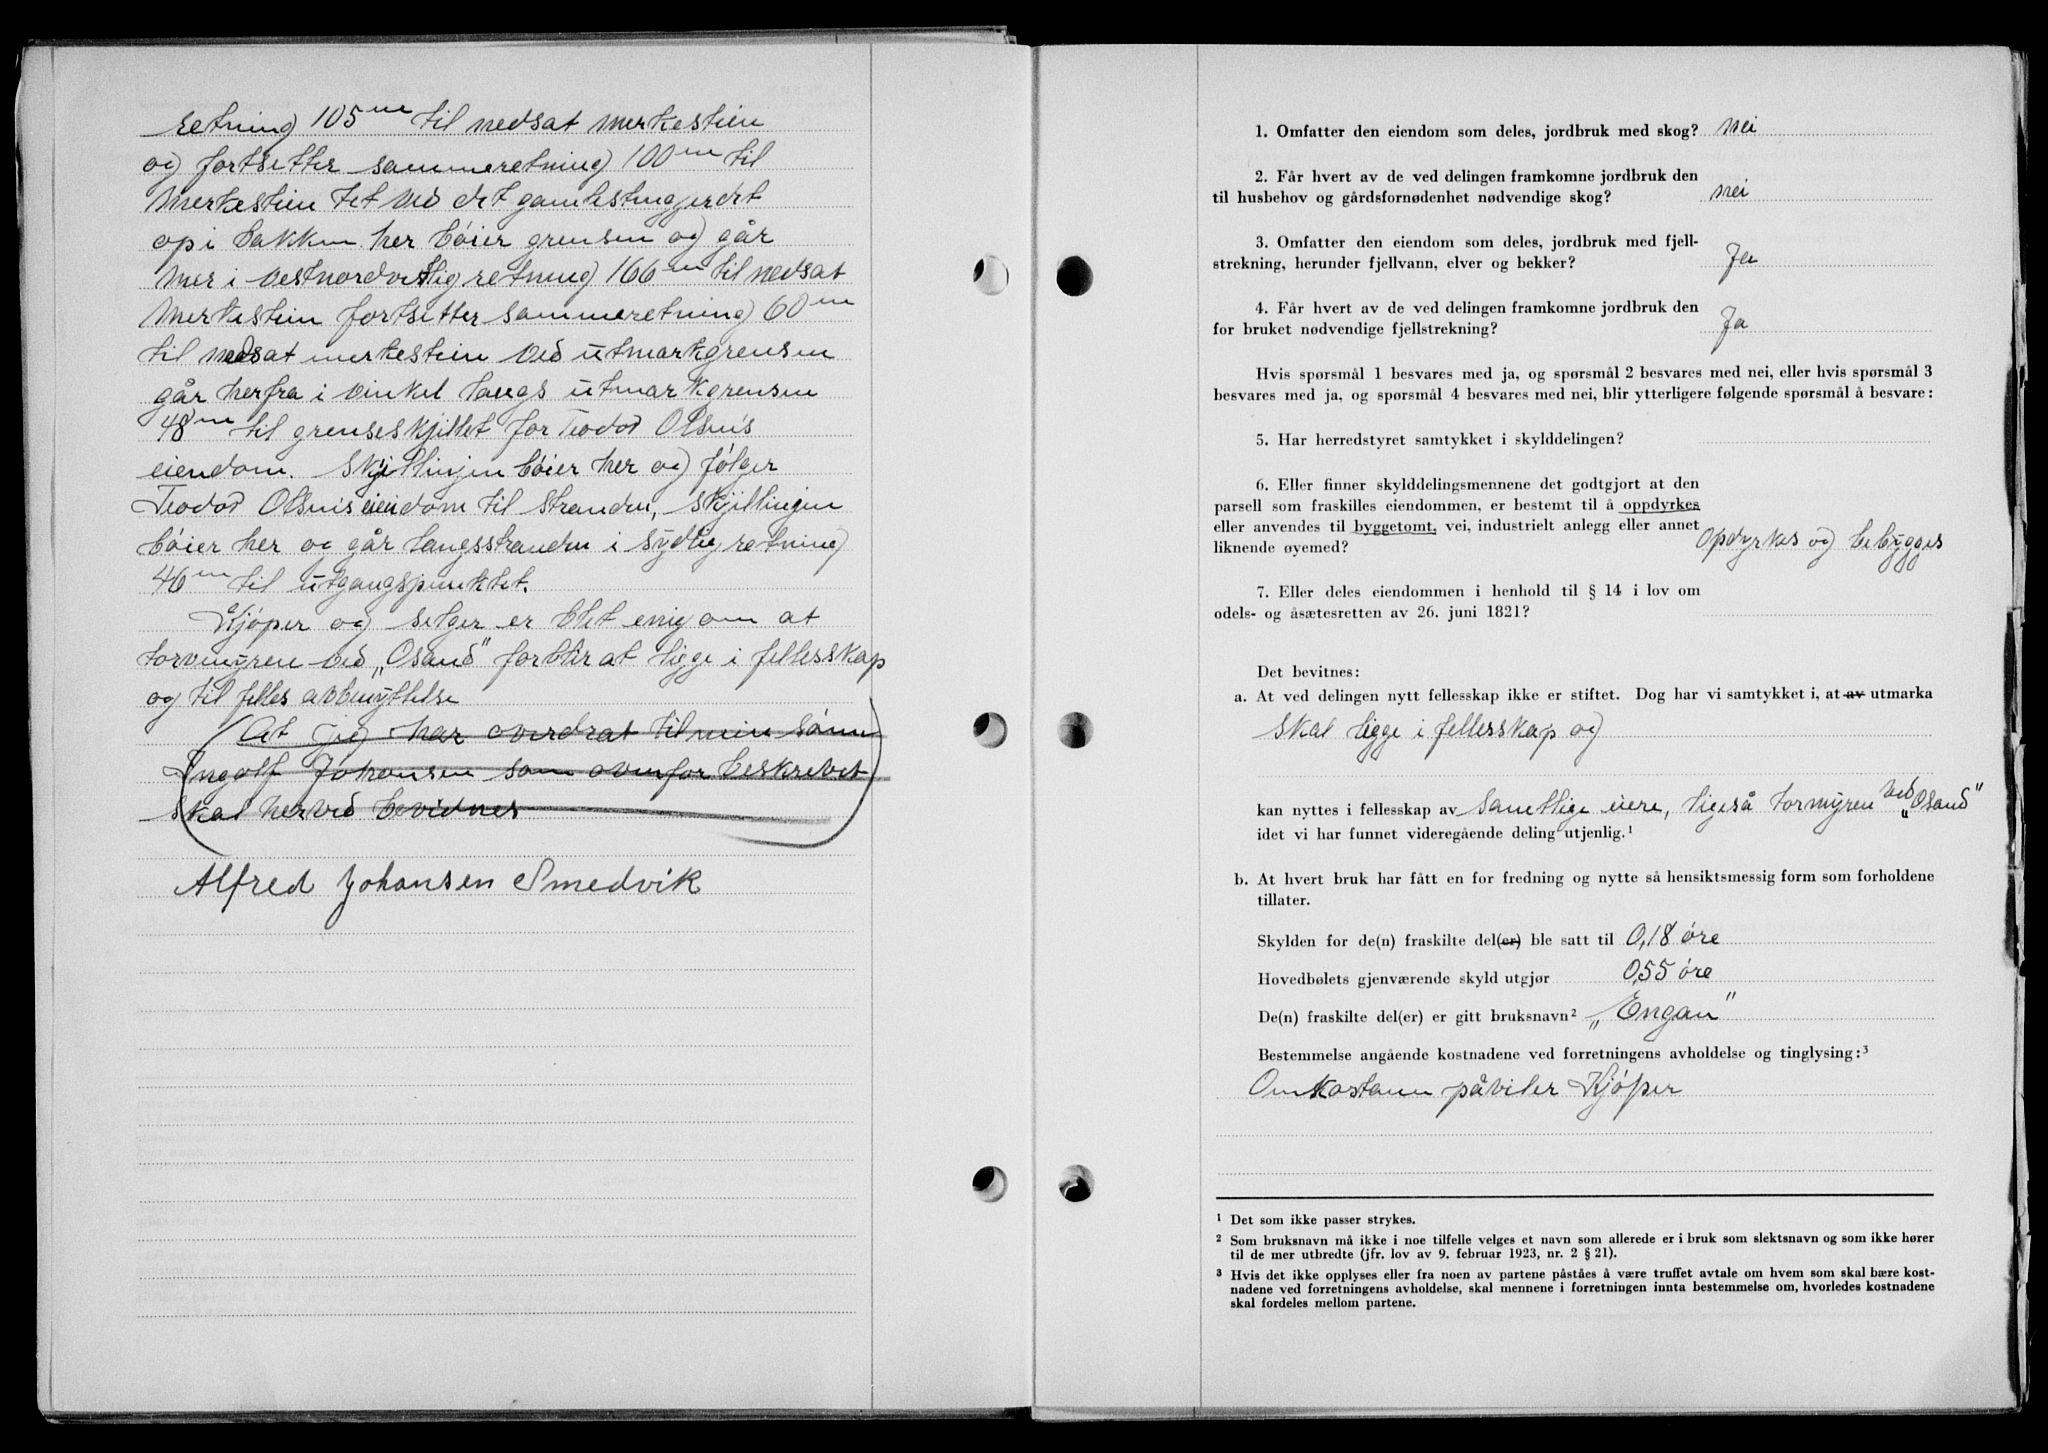 retning 105 m til nedsat merkestein
og fortsetter sammeretning 100 m til
Merkestein tet ved det gamlestengjerdet
op i bakken her bóier grensen og går
mer i vestnordvestlig retning 166 m til nedsat
Merkestein fortsetter sammeretning 60 m
til nedsat merkestein ved utmarkgrensen
går herfra i vinkel langs utmarkgrensen
48 m til grenseskjillet for Teodor Olsens
eiendom. Skjillingen bóier her og fólger
Teodor Olsens eiendom til stranden, Skjillingen
bóier her og går langsstranden i sydlig retning
46 m til utgangspunktet.
Kjóper og selger er blet enig om at
torvmyren ved „Osand" forblir at ligge i fellesskap
og til felles avbenyttelse
(At jeg har overdrat til min sónn
Ingolf Johansen som ovenfor beskrevet
skal herved bevidnes)
Alfred Johansen Smedvik
1. Omfatter den eiendom som deles, jordbruk med skog? nei
2. Får hvert av de ved delingen framkomne jordbruk den
til husbehov og gårdsfornødenhet nødvendige skog? nei
3. Omfatter den eiendom som deles, jordbruk med fjell-
strekning, herunder fjellvann, elver og bekker? Ja
4. Får hvert av de ved delingen framkomne jordbruk den
for bruket nødvendige fjellstrekning? Ja
Hvis spørsmål 1 besvares med ja, og spørsmål 2 besvares med nei, eller hvis spørsmål 3
besvares med ja, og spørsmål 4 besvares med nei, blir ytterligere følgende spørsmål å besvare:
5. Har herredstyret samtykket i skylddelingen?
6. Eller finner skylddelingsmennene det godtgjort at den
parsell som fraskilles eiendommen, er bestemt til å oppdyrkes
eller anvendes til byggetomt, vei, industrielt anlegg eller annet
liknende øyemed? Opdyrkes og bebygges
7. Eller deles eiendommen i henhold til § 14 i lov om
odels- og åsætesretten av 26. juni 1821?
Det bevitnes:
a. At ved delingen nytt fellesskap ikke er stiftet. Dog har vi samtykket i, at av utmarka
skal ligge i fellesskap og
kan nyttes i fellesskap av Samtlige eiere, ligeså tormyren ved „Osand"
idet vi har funnet videregående deling utjenlig.¹
b. At hvert bruk har fått en for fredning og nytte så hensiktsmessig form som forholdene
tillater.
Skylden for de(n) fraskilte del(er) ble satt til 0,18 óre
Hovedbølets gjenværende skyld utgjør 0,55 óre
De(n) fraskilte del(er) er gitt bruksnavn² „Engan"
Bestemmelse angående kostnadene ved forretningens avholdelse og tinglysing:³
Omkostann påviler Kjóper
¹ Det som ikke passer strykes.
² Som bruksnavn må ikke i noe tilfelle velges et navn som allerede er i bruk som slektsnavn og som ikke hører
til de mer utbredte (jfr. lov av 9. februar 1923, nr. 2 § 21).
³ Hvis det ikke opplyses eller fra noen av partene påståes å være truffet avtale om hvem som skal bære kost-
nadene ved forretningens avholdelse, skal mennene i forretningen innta bestemmelse om, hvorledes kostnadene
skal fordeles mellom partene.